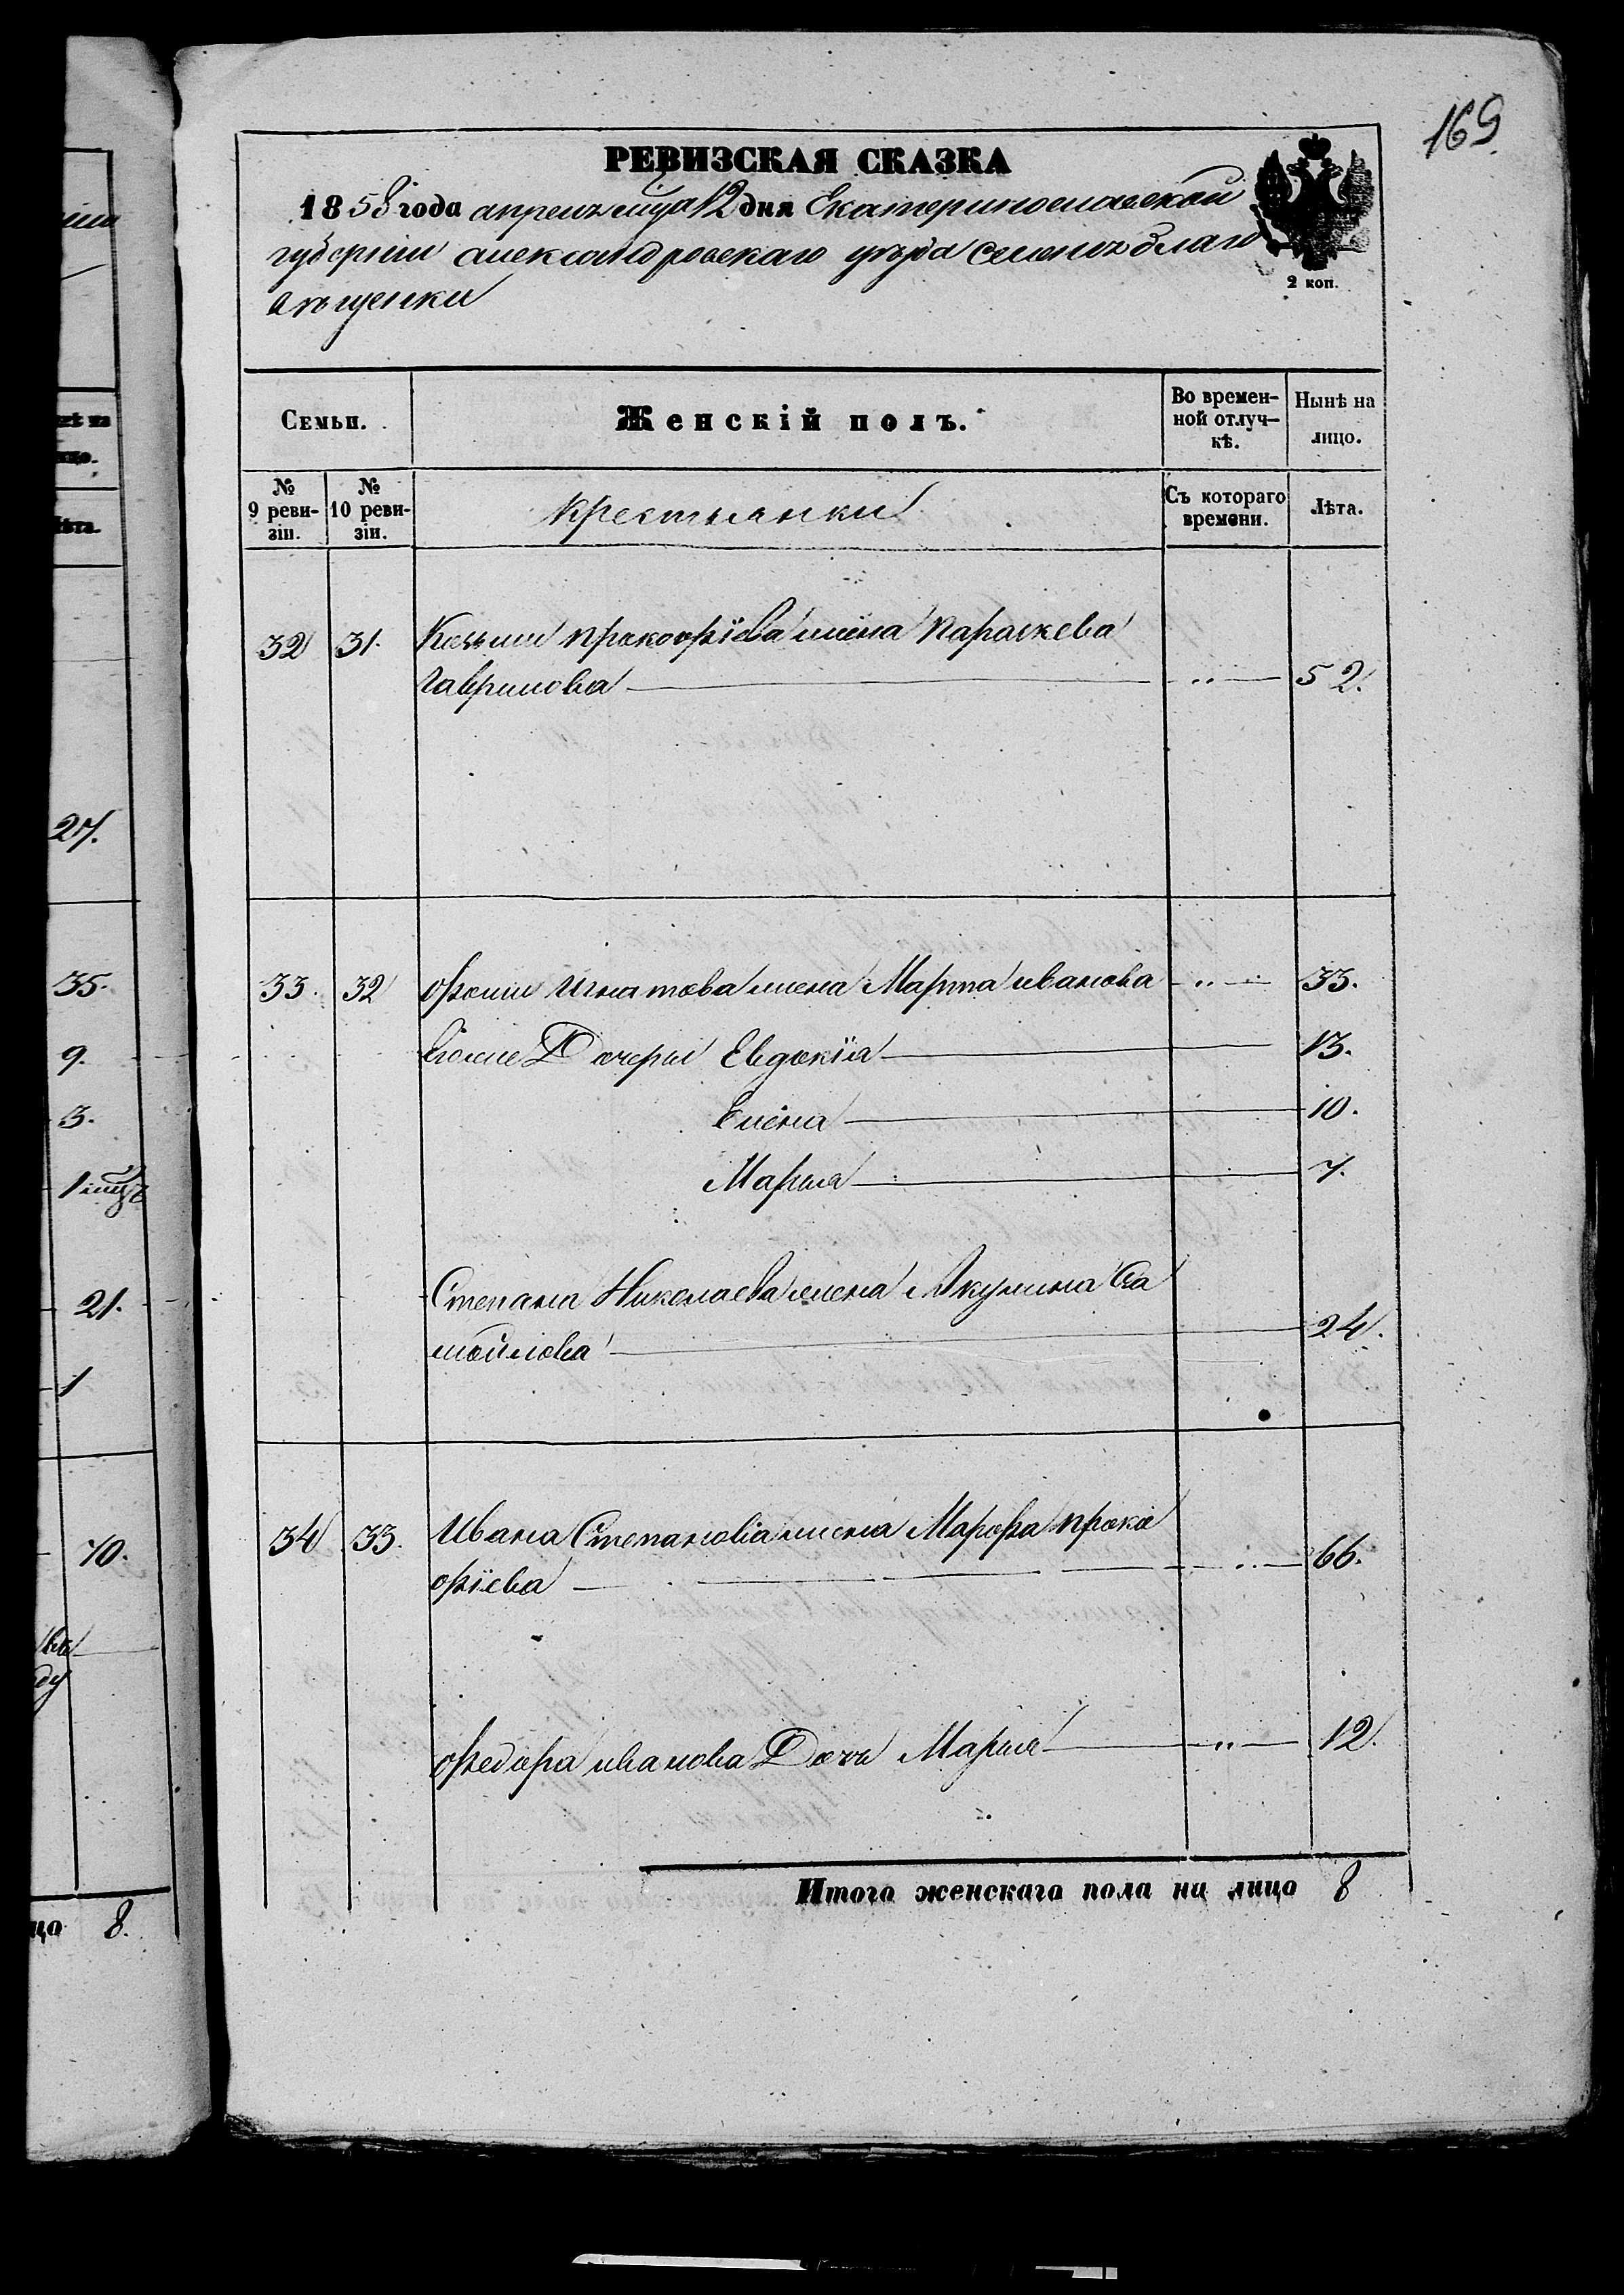 169
РЕВИЗСКАЯ СКАЗКА
1858 года апреля мца 12 дня Екатеринославской
губернии александровскаго уезда селения благо
вещенки
2 коп.
Семьи.
Женскій полъ.
Во времен-
ной отлуч-
кѣ.
Нынѣ на
лицо.
№
9 реви-
зіи.
№
10 реви-
зіи.
крестьянки
Съ котораго
времени.
Лѣта.
32 31. Козьми прокофіева жена Параскева
гаврилова 52.
33. 32 фоми Игнатова жена Марта иванова 33.
Дочери Евдокія 13.
Елена 10.
Мария 7.
Степана Николаева жена Акулина Са
мойлова 24.
34 33. Ивана Степанова жена Марфа проко
фіева 66.
федора иванова Дочь Мария 12.
Итого женскаго пола на лицо 8
27.
35.
9.
3.
21.
1
10.
8.